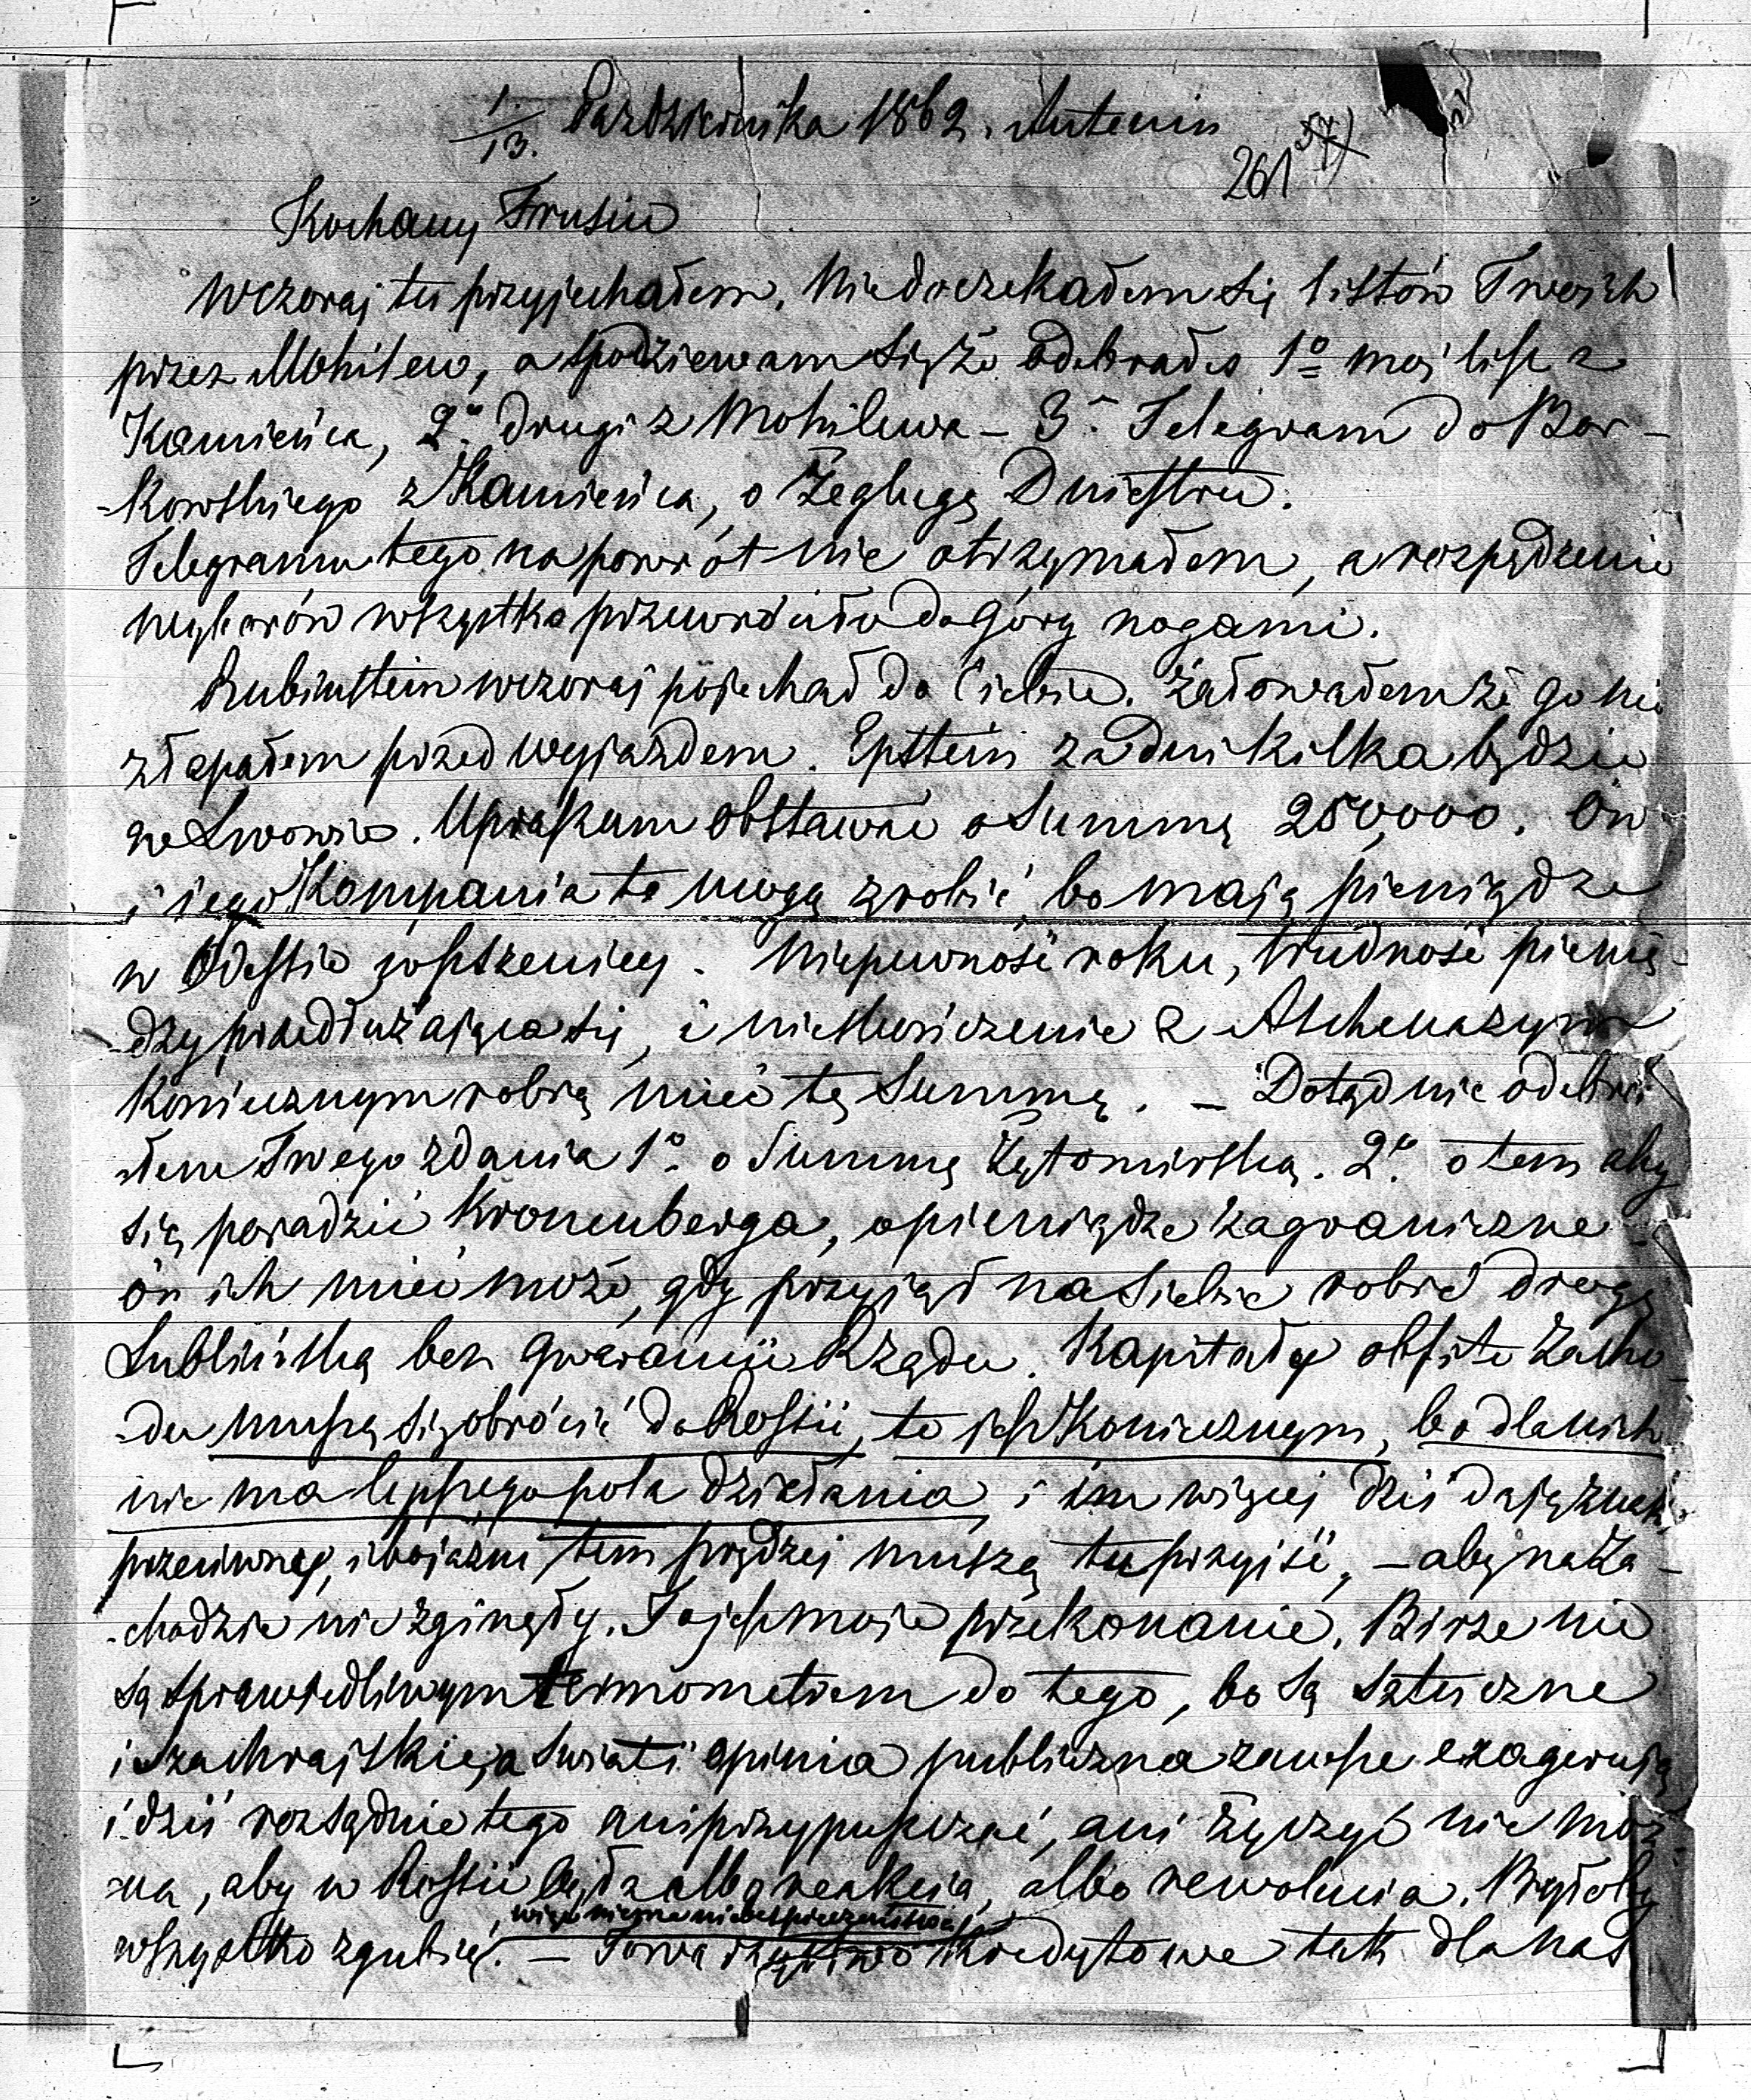 1/13. Października 1862. Antonin
261
Kochany Frusiu
Wczoraj tu przyjechałem. Niedoczekałem się listów Twoich
przez Mohilew, a spodziewam się że odebrałeś 1o moj list z
Kamieńca, 2o drugi z Mohilewa – 3o Telegram do Bor-
-kowskiego z Kamieńca, o Żeglugę Dniestru.
Telegramu tego na powrót nie otrzymałem, a rozpędzenie
wyborów wszystko przewróciło do góry nogami.
Rubinstein wczoraj pojechał do Ciebie. Żałowałem że go nie
złapałem przed wyjazdem. Epstein za dni kilka będzie
we Lwowie. Upraszam obstawać o Summę 250,000. On
i jego Kompania to mogą zrobić, bo mają pieniądze
w Odessie z pszenicy. Niepewność roku, trudność pienię-
-dzy przedłużająca się, i nieskończenie z Aschenazym
koniecznym robią mieć tę Summę. – Dotąd nie odebra-
-łem Twego zdania 1o o Summę Żytomirską. 2o o tem aby
się poradzić Kronenberga, o pieniądze zagraniczne –
ón ich mieć może, gdy przyjął na siebie robić drogę
Lublińską bez gwarancii Rządu. Kapitały obfite Zacho-
-du muszą się obrócić do Rossii, to jest koniecznym, bo dla nich
nie ma lepszego pola działania i im więcej dziś dają znaki
przeciwney, i bojaźni tem prędzej muszą tu przyjść, – aby na Za-
-chodzie nie zginęły. To jest moje przekonanie. Birże nie
są sprawiedliwym termometrem do tego, bo są sztuczne
i szachrajskie, a świat i opinia publiczna zawsze exagerują
i dziś rozsądnie tego ani przypuszczać, ani życzyć nie moż-
-na, aby w Rossii była albo reakcia, albo rewolucia. Byłoby
więc niema niebezpieczeństwa
wszystko zgubić. – Towarzystwo Kredytowe tak dla nas